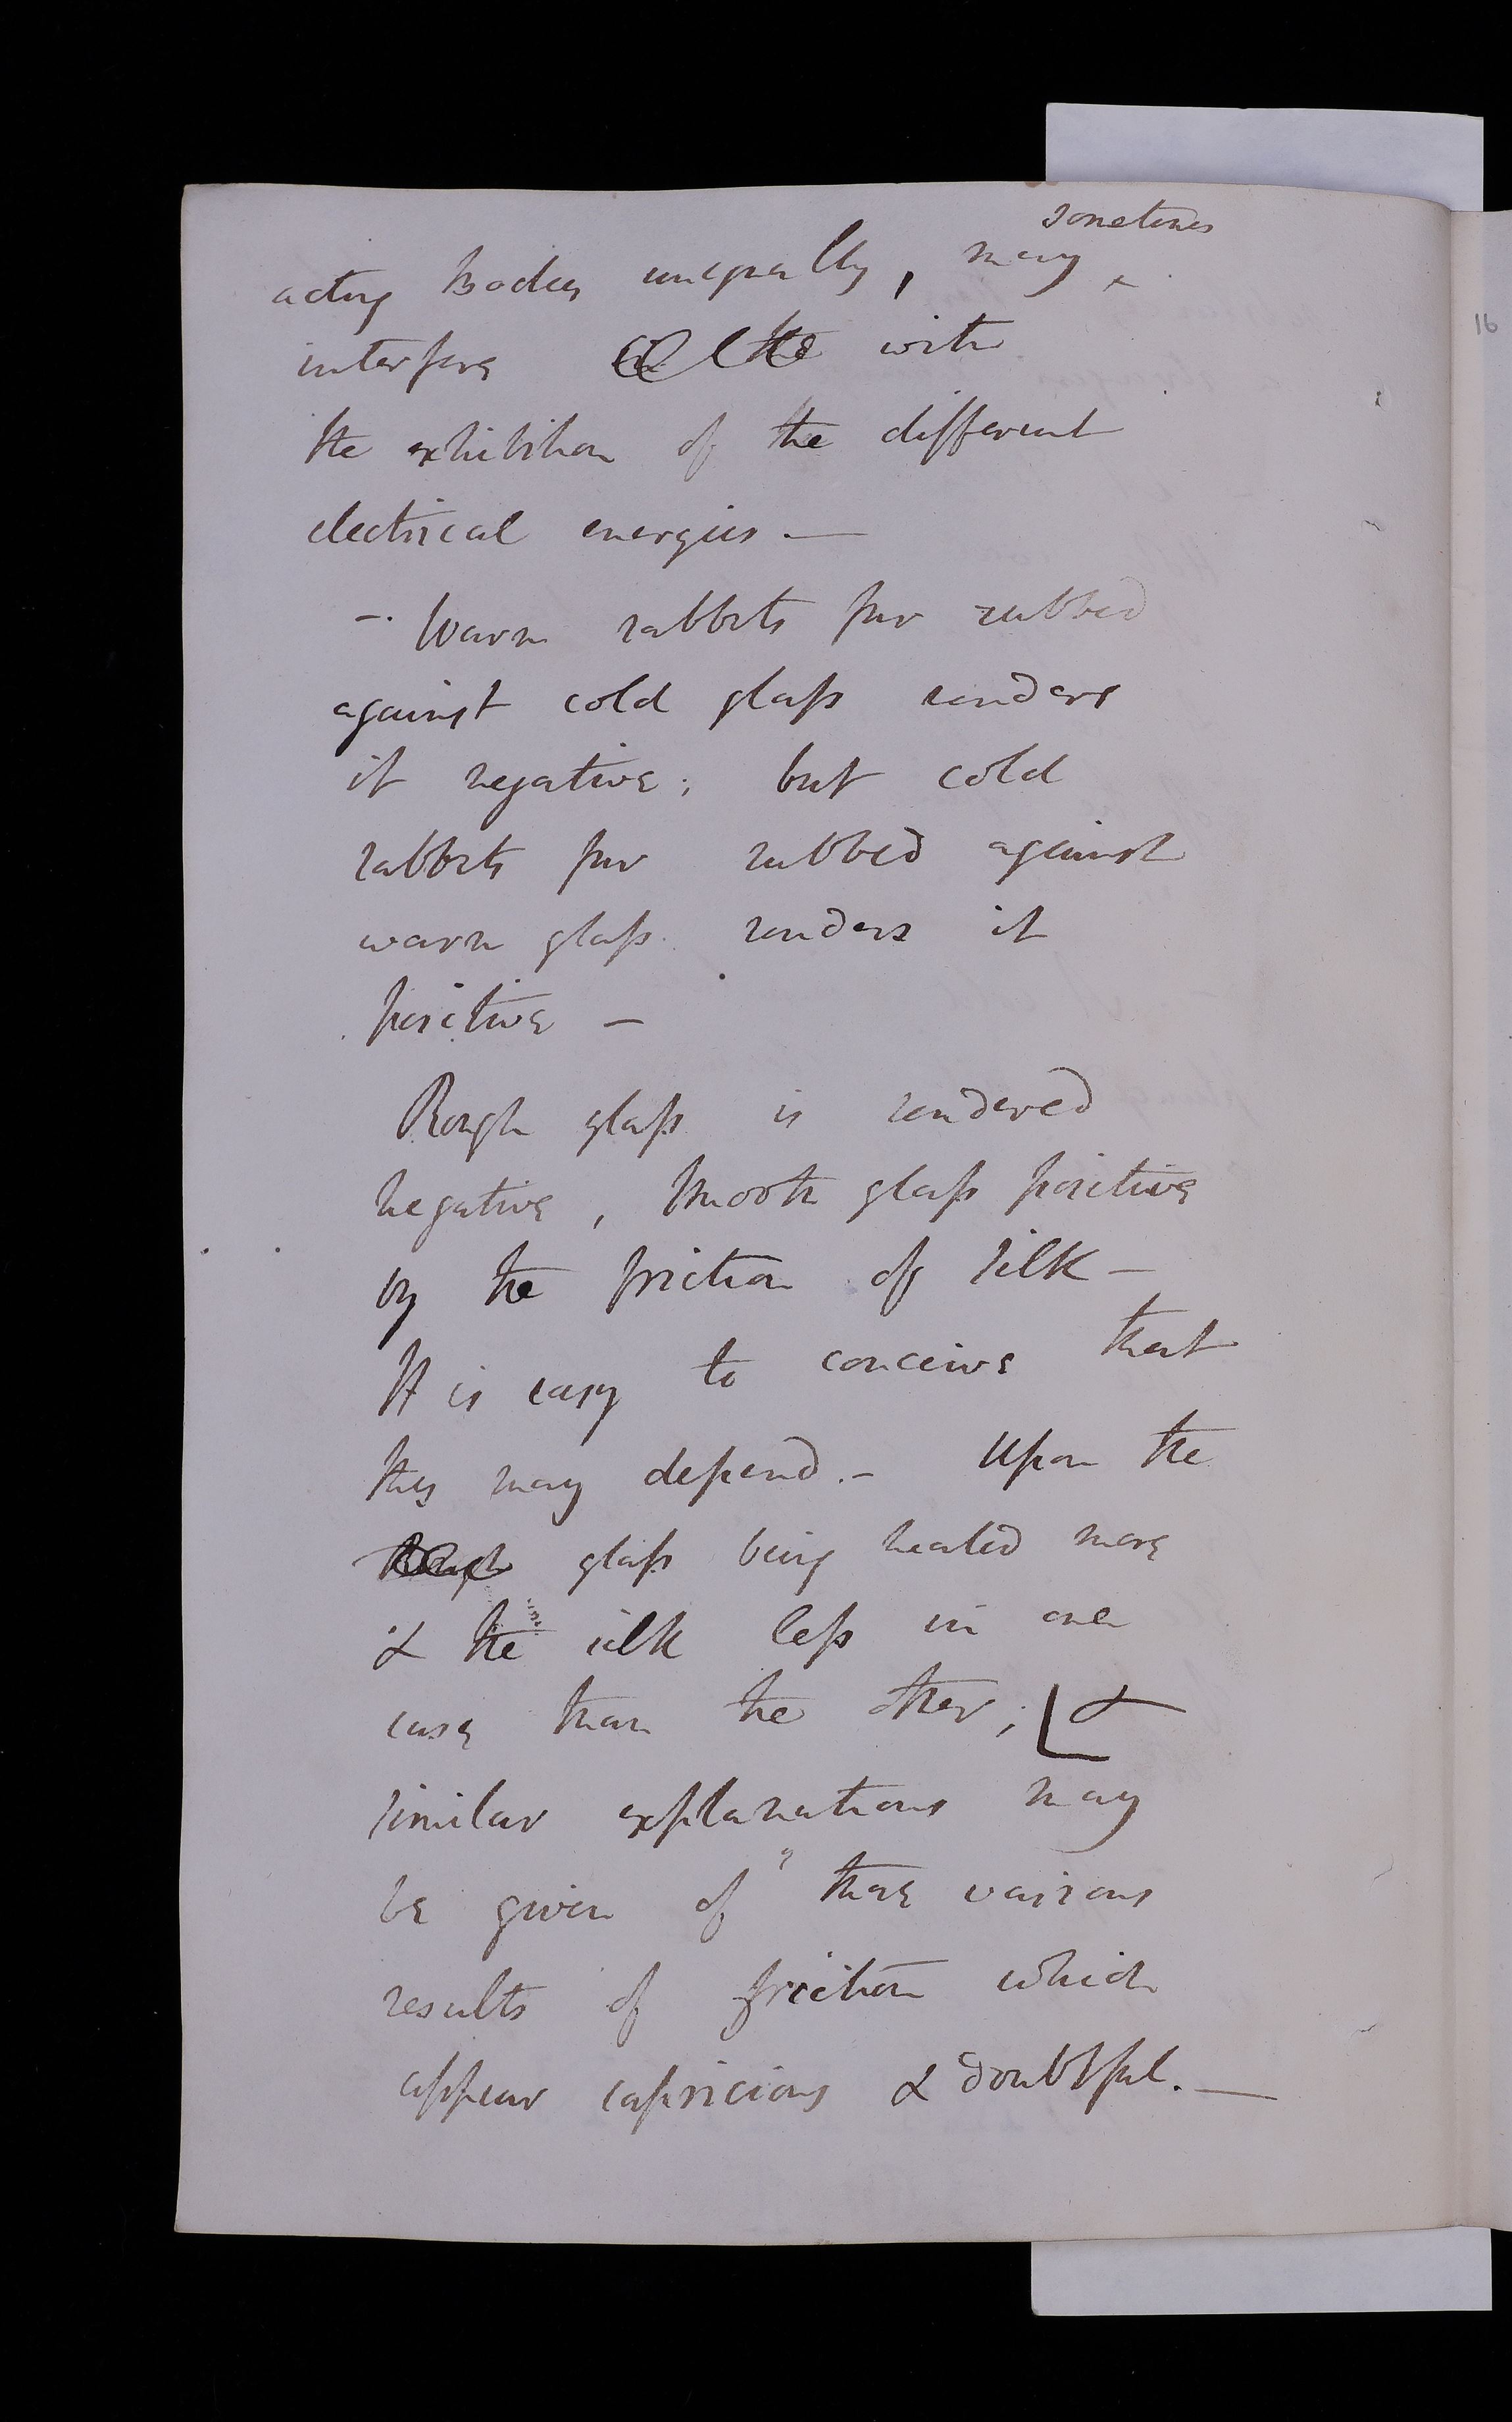 sometimes
acting Bodies unequally, may ^
interfere the with
the exhibition of the different
electrical energies. —
-. Warm rabbits fur rubbed
against cold glass renders
it negative; but cold
rabbits fur rubbed against
warm glass renders it
positive —
Rough glass is rendered
negative, smooth glass positive
by the friction of silk —
It is easy to conceive that
this may depend. - Upon the
Rough glass being heated more
& the silk less in one
case than the other; [ &
similar explanations may
be given of those various
results of friction which
appear capricious & doubtful. —
16